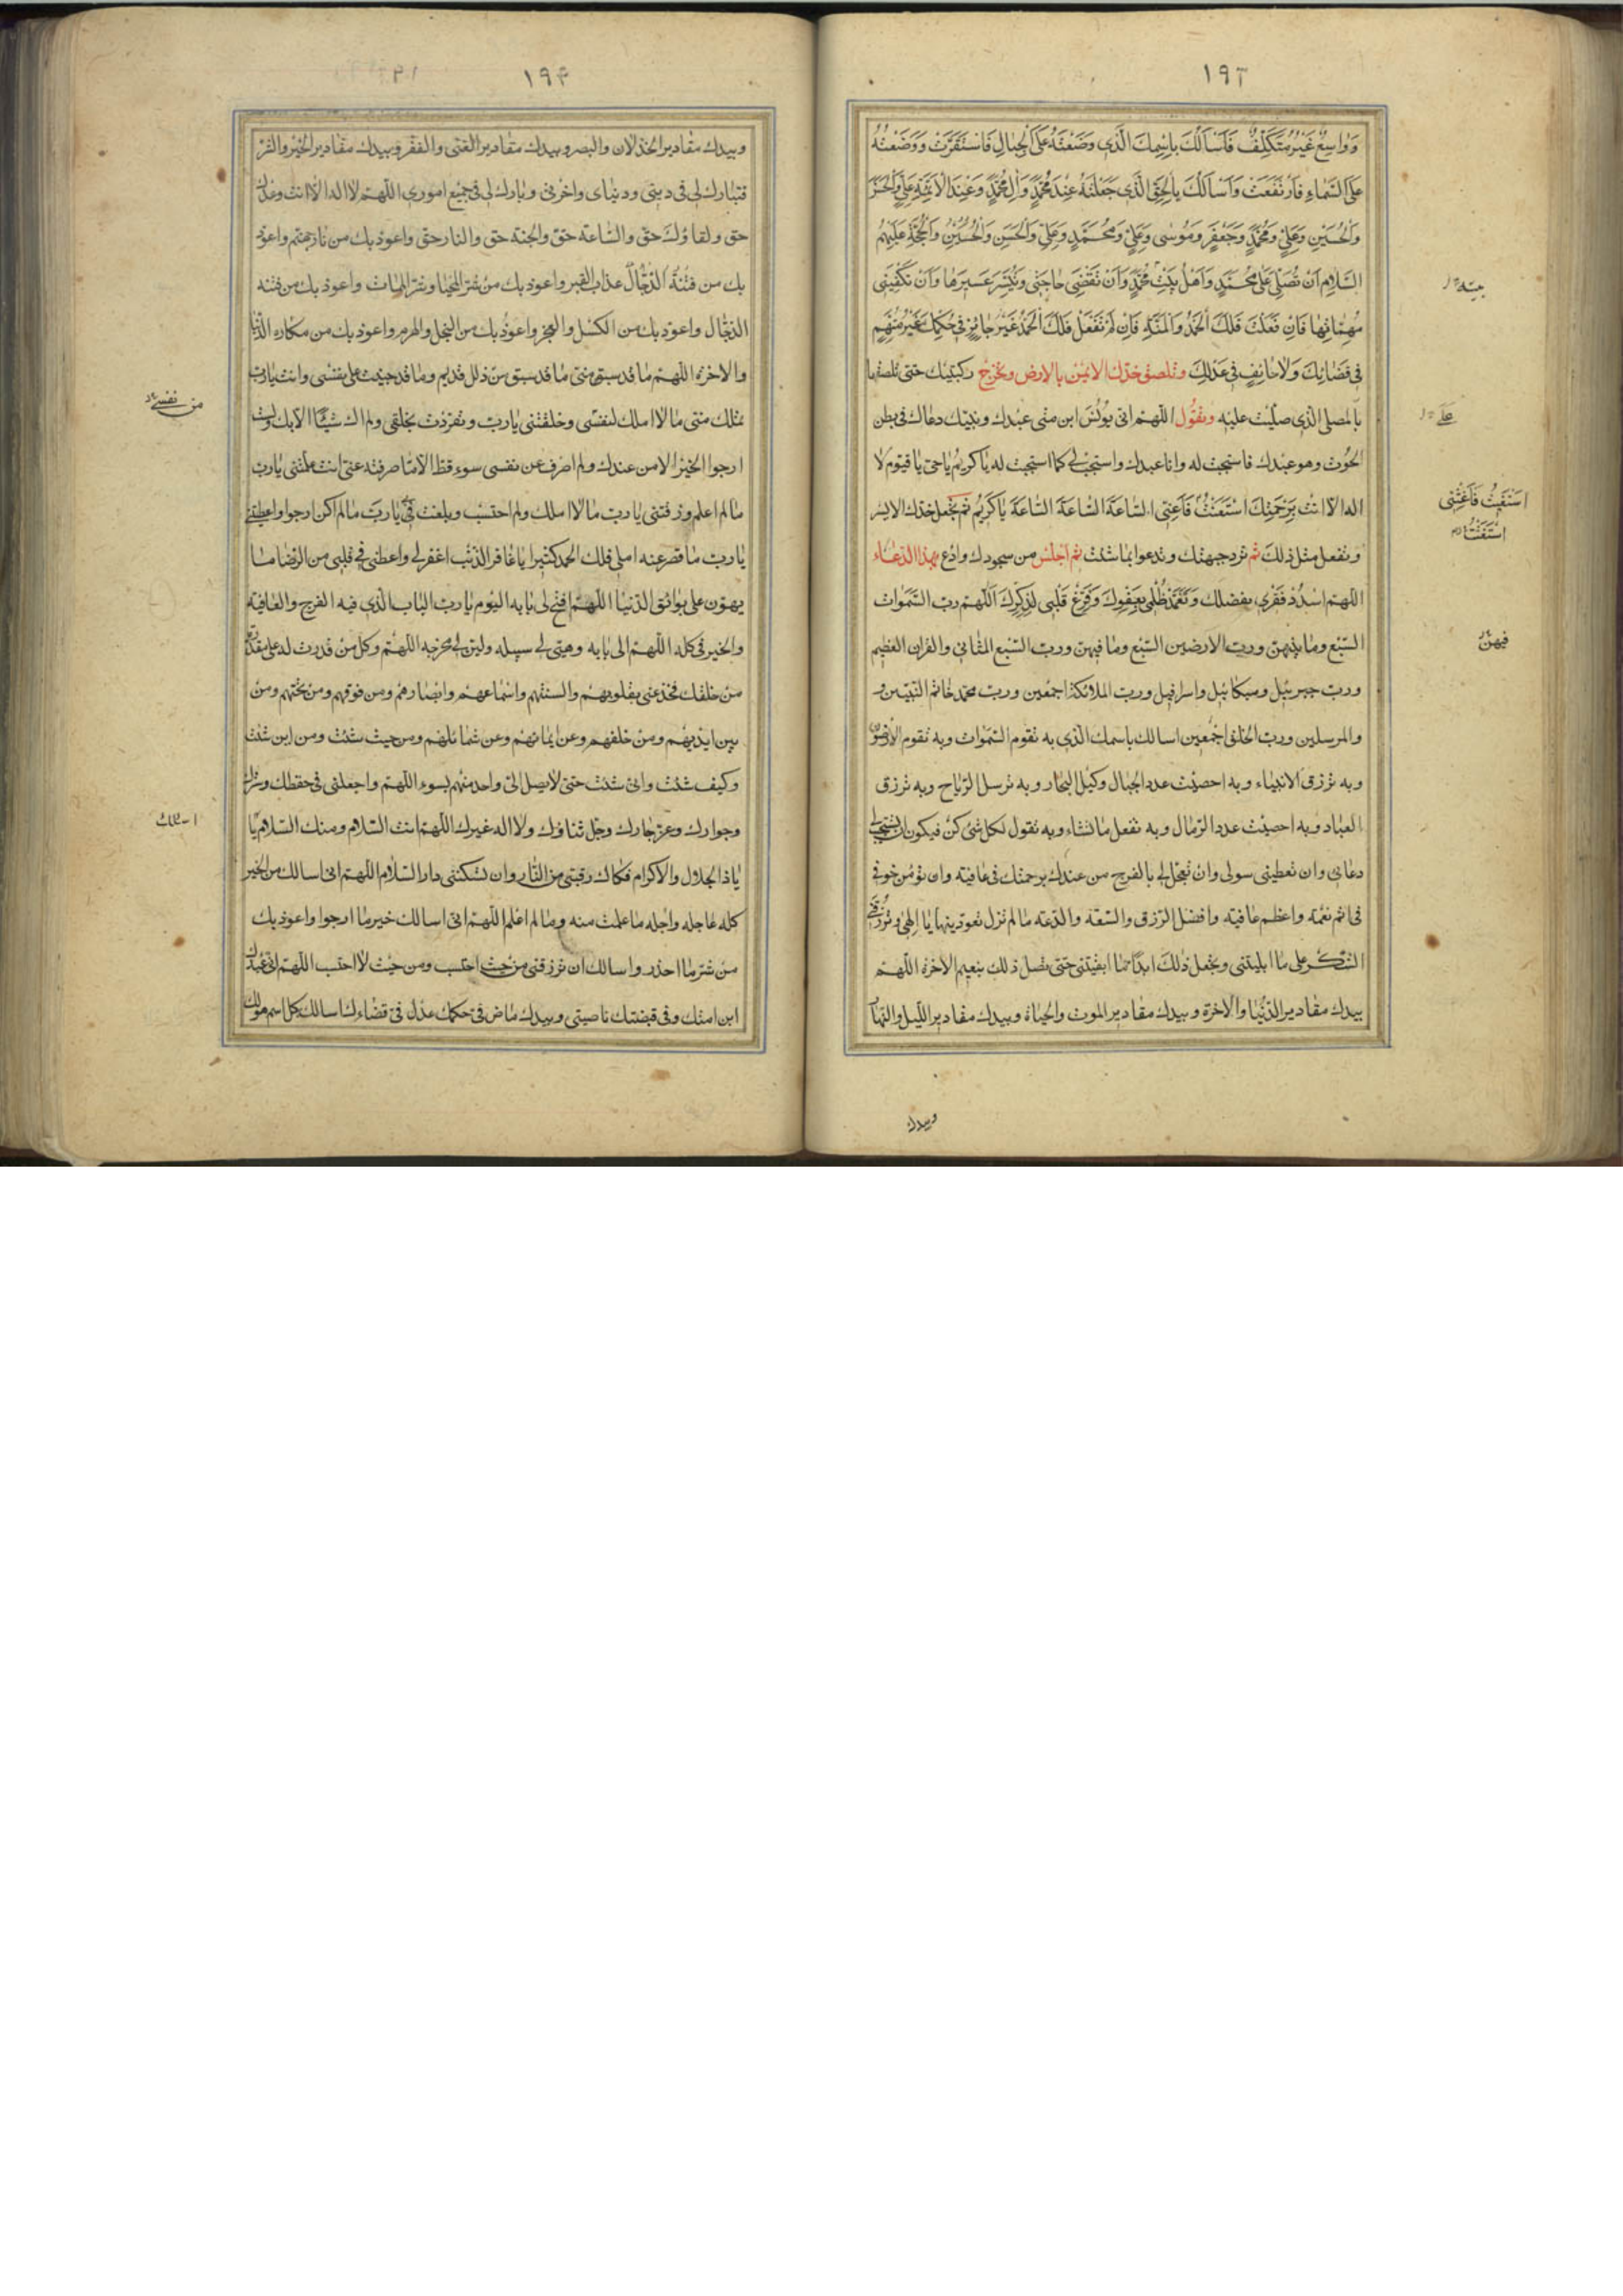 ١٩٣
وَوٰاسِعٌ غَيْرُ مُتَكَلِّفٍ فَاَسْاَلُكَ بِاسْمِكَ الَّذِى وَضَعْتَهُ عَلَى الْجِبٰالِ فَاسْتَقَرَّتْ وَوَضَعْتَهُ
عَلَى السَّمٰاءِ فَارْتَفَعَتْ وَاَسْاَلُكَ بِالْحَقِّ الَّذِى جَعَلْتَهُ عِنْدَ مُحَمَّدٍ وَاٰلِ مُحَمَّدٍ وَعِنْدَ الْاَئِمَّةِ عَلِيٍّ وَالْحَسَنِ
وَالْحُسَيْنِ وَعَلِيٍّ وَمُحَمَّدٍ وَجَعْفَرٍ وَمُوسٰى وَعَلِيٍّ وَمُحَمَّدٍ وَعَلِيٍّ وَالْحَسَنِ وَالْحُجَّةِ عَلَيْهِمُ
السَّلامُ اَنْ تُصَلِّىَ عَلىٰ مُحَمَّدٍ وَاَهْلِ بَيْتِ مُحَمَّدٍ وَاَنْ تَقْضِىَ حٰاجَتِى وَتُيَسِّرَ عَسِيرَهٰا وَاَنْ تَكْفِيَنِى
مُهِمّٰاتِهٰا فَاِنْ فَعَلْتَ فَلَكَ الْحَمْدُ وَالْمِنَّةُ فَاِنْ لَمْ تَفْعَلْ فَلَكَ الْحَمْدُ غَيْرَ جٰائِرٍ فِى حُكْمِكَ غَيْرَ مُتَّهَمٍ
فِى قَضٰائِكَ وَلاٰ حٰائِفٍ فِى عَدْلِكَ وتلصق خدّك الايمن بالارض وتخرج ركبتيك حتى تلصقها
بالمصلى الذى صليت عليه وتقول اللهم ان يونس ابن متى عبدك ونبيك دعاك فى بطن
الحوت وهو عبدك فاستجبت له وانا عبدك فاستجب لى كما استجبت له يا كريم يا حى يا قيوم لا
اله الا انت بِرَحْمَتِكَ اسْتَغَثْتُ فَاَغِثْنِى السّٰاعَةَ السّٰاعَةَ السّٰاعَةَ يٰا كَرِيمُ ثم تجعل خدك الايسر
وتفعل مثل ذلك ثم ترد جبهتك وتدعوا بما شئت ثم اجلس من سجودك وادع بهذا الدعاء
اللهم اسدد فقرى بفضلك وَتَغَمَّدْ ظُلْمِى بِعَفْوِكَ وَفَرِّغْ قَلْبِى لِذِكْرِكَ اَللّٰهم رب السموات
السبع وما بينهن ورب الارضين السبع وما فيهن ورب السبع المثانى والقران العظيم
ورب جبرئيل وميكائيل واسرافيل ورب الملائكة اجمعين ورب محمد خاتم النبيين و
والمرسلين ورب الخلق اجمعين اسالك باسمك الذى به تقوم السموات وبه تقوم الارضون
وبه ترزق الانبياء وبه احصيت عدد الجبال وكيل البحار وبه ترسل الرياح وبه ترزق
العباد وبه احصيت عدد الرمال وبه تفعل ما تشاء وبه تقول لكل شئ كن فيكون ان تستجيب
دعائى وان تعطينى سولى وان تعجل لى بالفرج من عندك برحمتك فى عافية وان تؤمن خوفى
فى اتم نعمة واعظم عافية وافضل الرزق والسعة والدعة ما لم تزل تعودينها يا الهى وترزقنى
الشكر على ما ابليتنى وتجعل ذلك ابدا ما ابقيتنى حتى تصل ذلك بنعيم الاخرة اللهم
بيدك مقادير الدنيا والاخرة وبيدك مقادير الموت والحياة وبيدك مقادير الليل والنهار
وبيدك
بيته
على
استغثت فاغثنى
فيهن
١٩۴
وبيدك مقادير الخذلان والنصر وبيدك مقادير الغنى والفقر وبيدك مقادير الخير والشر
فبارك لى فى دينى ودنياى واخرتى وبارك لى فى جميع امورى اللهم لا اله الا انت وعدك
حق ولقاؤك حق والساعة حق والجنة حق والنار حق واعوذ بك من نار جهنم واعوذ
بك من عذاب القبر واعوذ بك من شر المحيا وشر الممات واعوذ بك من فتنة
الدجال واعوذ بك من الكسل والعجز واعوذ بك من البخل والهرم واعوذ بك من مكاره الدنيا
والاخرة اللهم ما قد سبق منى ما قد سبق من ذلل قديم وما قد جنيت على نفسى وانت يا رب
تملك منى ما لا املك لنفسى وخلقتنى يا رب وتفردت بخلقى ولم اك شيئا الا بك ولست
ارجوا الخير الا من عندك ولم اصرف عن نفسى سوء قط الا ما صرفته عنى انت علمتنى يا رب
ما لم اعلم ورزقتنى يا رب ما لا املك ولم احتسب وبلغت بى يا رب ما لم اكن ارجوا واعطيتنى
يا رب ما قصر عنه املى فلك الحمد كثيرا يا غافر الذنب اغفر لى واعطنى فى قلبى من الرضا ما
يهون على بوائق الدنيا اللهم افتح لى بابه اليوم يا رب الباب الذى فيه الفرج والعافية
والخير كله اللهم افتح لى بابه وهيئ لى سبيله ولين لى مخرجه اللهم وكل من قدرت له على مقدرة
من خلقك فخذ عنى بقلوبهم والسنتهم واسماعهم وابصارهم ومن فوقهم ومن تحتهم ومن
بين ايديهم ومن خلفهم وعن ايمانهم وعن شمائلهم ومن حيث شئت ومن اين شئت
وكيف شئت وانى شئت حتى لا يصل الى واحد منهم بسوء اللهم واجعلنى فى حفظك وسترك
وجوارك وعز جارك وجل ثناؤك ولا اله غيرك اللهم انت السلام ومنك السلام
يا ذا الجلال والاكرام فكاك رقبتى من النار وان تسكننى دار السلام اللهم انى اسالك من الخير
كله عاجله واجله ما علمت منه وما لم اعلم اللهم انى اسالك خير ما ارجوا واعوذ بك
من شر ما احذر واسالك ان ترزقنى من حيث احتسب ومن حيث لا احتسب اللهم انى عبدك
ابن امتك وفى قبضتك ناصيتى وبيدك ماض فى حكمك عدل فى قضاءك اسالك بكل اسم هو لك
من نفسى
اسئلك